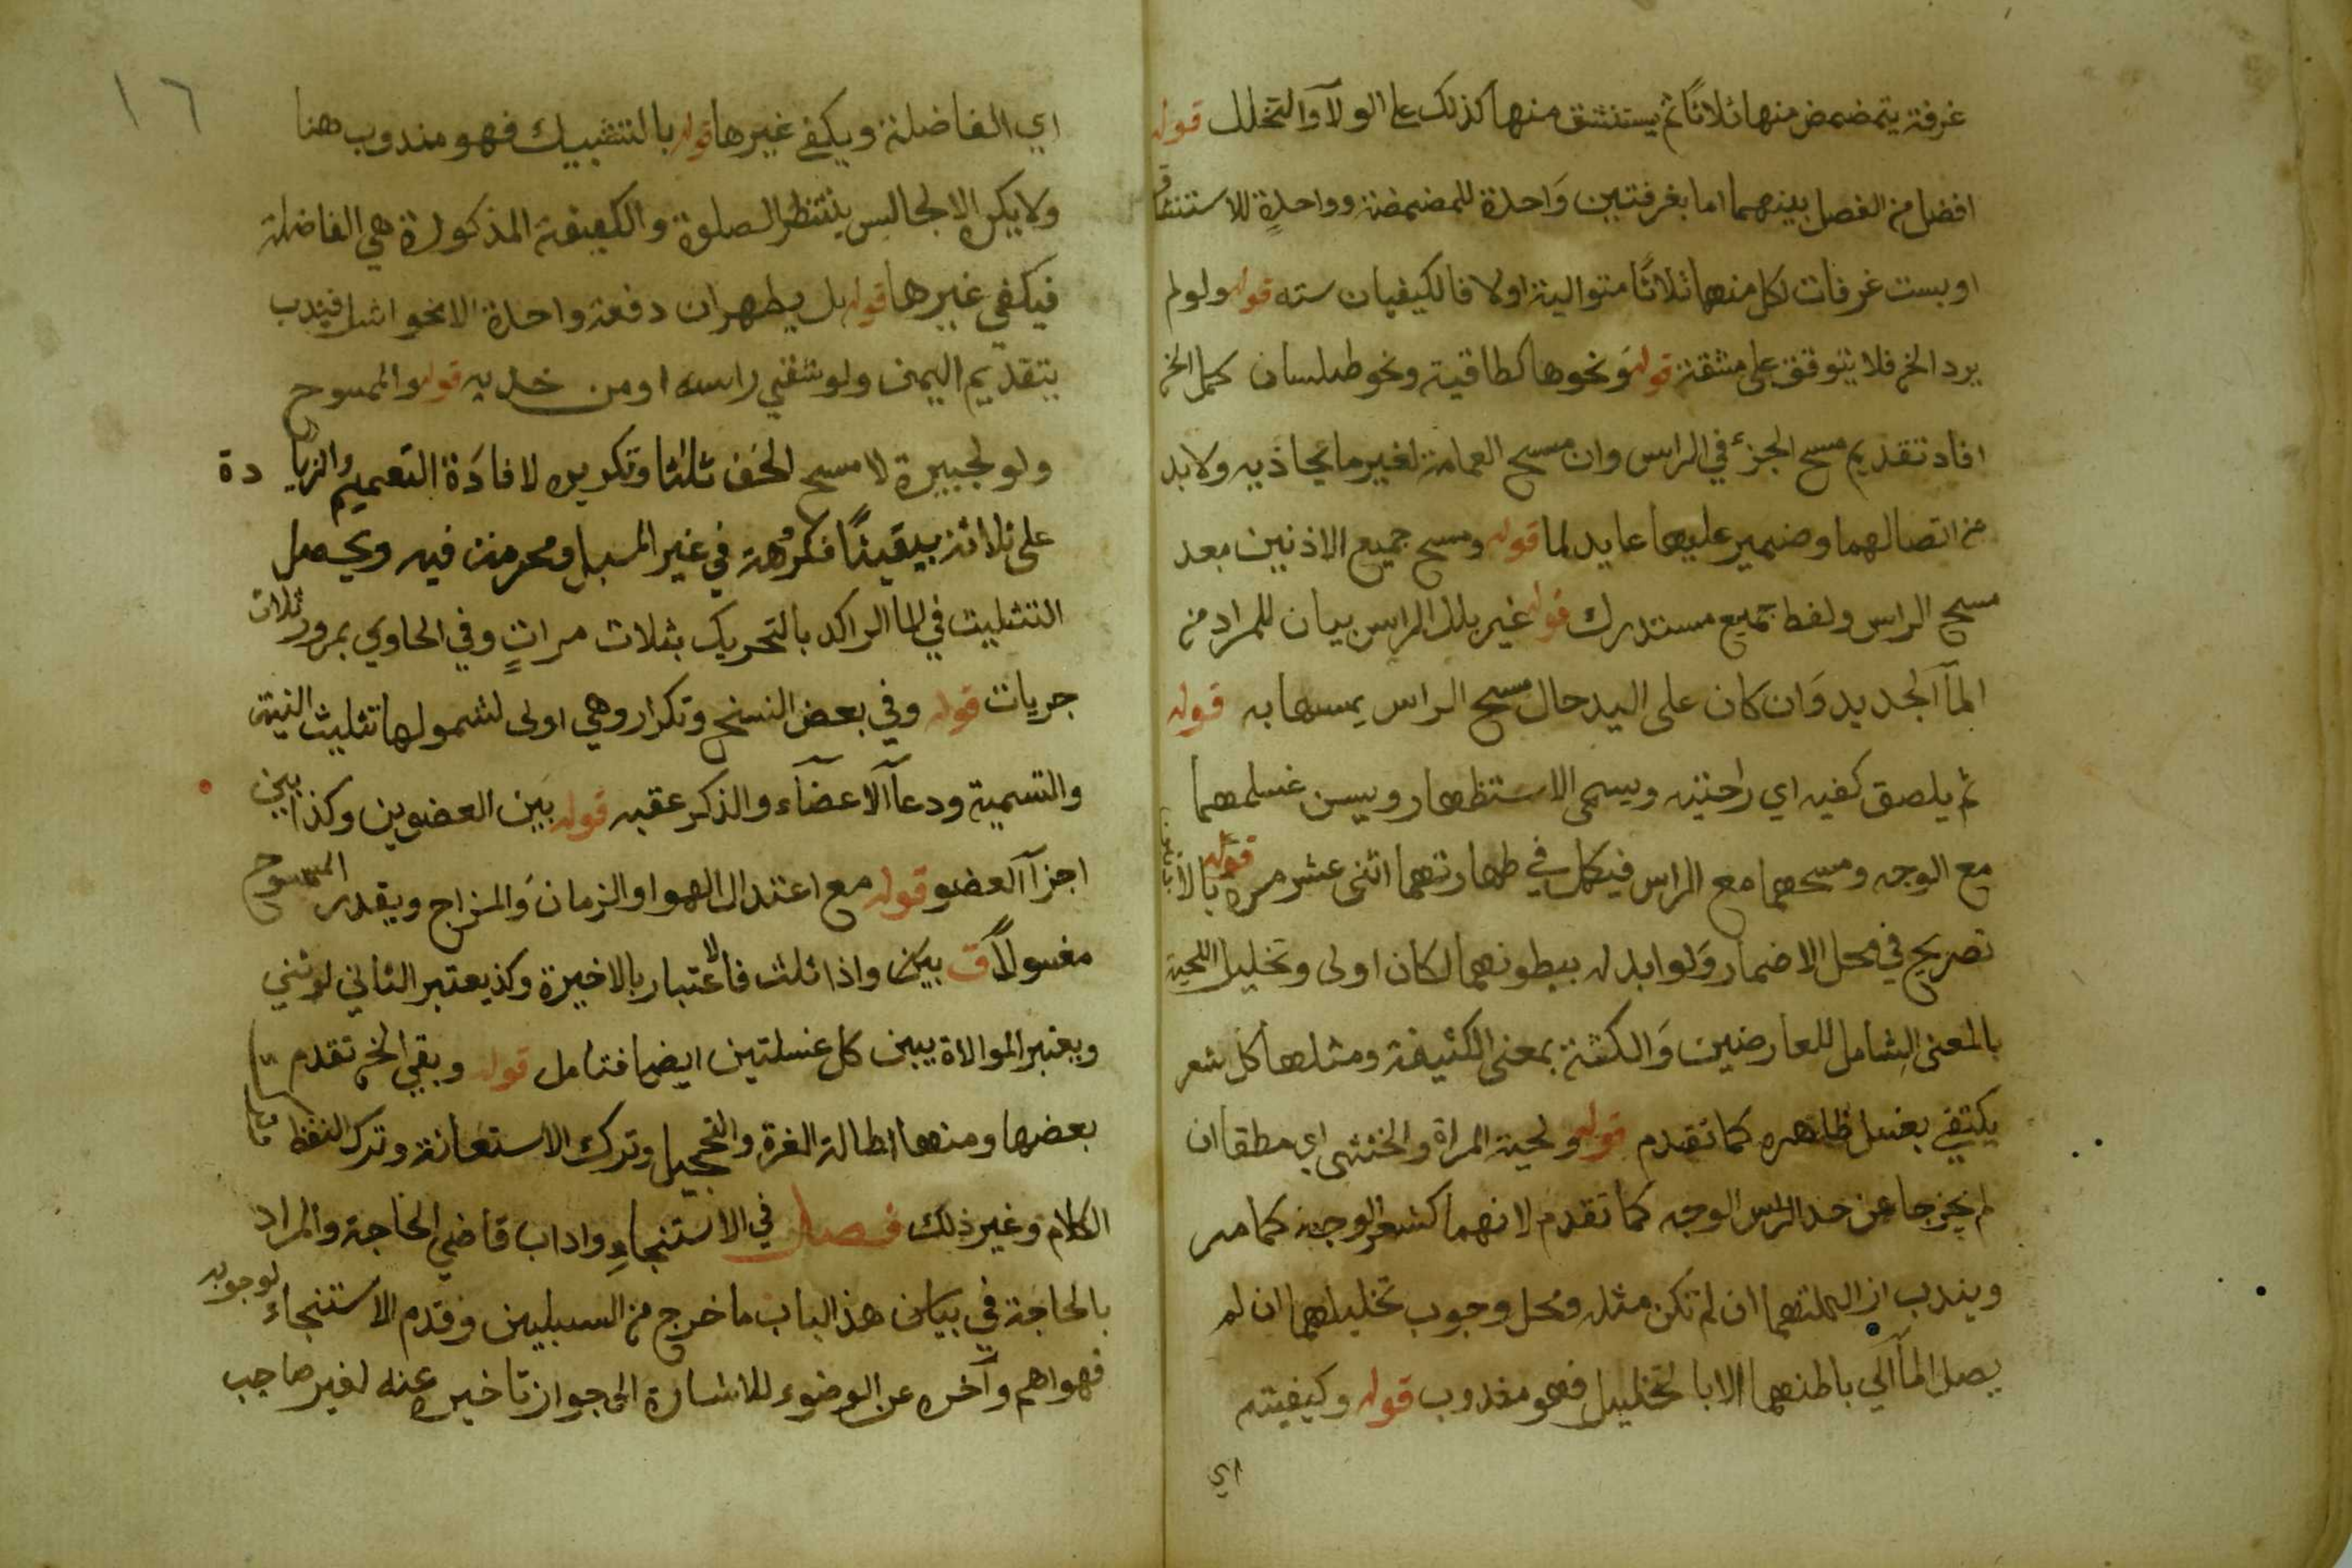 غرفة يتمضمض منها ثلاثا ثم يستنشق منها كذلك على الولآ والتخلل قوله
افضل من الفصل بينهما اما بغرفتين واحدة للمضمضة وواحدة للاستنشاق
او بست غرفات لكل منهما ثلاثا متوالية اولا فالكيفيات سته قوله ولو لم
يرد الخ فلا يتوقف على مشقة قوله ونحوها كطاقية ونحو طيلسان كمل الخ
افاد تقديم مسح الجزء في الراس وان مسح العمامة لغير ما يحاذيه ولا بد
من اتصالهما وضمير عليهما عايد لما قوله ومسح جميع الاذنين بعد
مسح الراس ولفظ جميع مستدرك قوله غير بلل الراس بيان للمراد من
المآ الجديد وان كان على اليد حال مسح الراس يمسها به قوله
ثم يلصق كفيه اي راحتيه ويسمى الاستظهار ويسن غسلهما
مع الوجه ومسحهما مع الراس فيكمل في طهارتهما اثنى عشر مرة قوله بالا
تصريح في محل الاضمار ولو ابدله ببطونهما لكان اولى وتخليل اللحية
بالمعنى الشامل للعارضين والكثة بمعنى الكثيفة ومثلها كل شعر
يكتفي بغسل ظاهره كما تقدم قوله ولحية المراة والخنثى اي مطقا ان
لم يخرجا عن حد الراس الوجه كما تقدم لانهما كشعر الوجه كما مر
ويندب ازالتهما ان لم تكن مثله ومحل وجوب تخليلهما ان لم
يصل المآ الي باطنهما الا بالتخليل فهو مندوب قوله وكيفيته
اي
١٦
اي الفاضلة ويكفي غيرها قوله بالتشبيك فهو مندوب هنا
ولا يكره الا لجالس ينتظر الصلوة والكيفية المذكورة هي الفاضلة
فيكفي غيرها قوله بل يطهران دفعة واحدة الا نحو اشل فيندب
بتقديم اليمنى ولو شقي راسه او من خديه قوله والممسوح
ولو لجبيرة لا مسح الخف ثلثا وتكريره لافادة التعميم والزيادة
على ثلاثة بيقيناً مكروهة في غير المسبل ومحرمة فيه ويحصل
التثليث في الما الراكد بالتحريك بثلاث مراتٍ وفي الحاوي بمرور ثلاث
جريات قوله وفي بعض النسخ وتكرار وهي اولى لشمولها تثليث النية
والتسمية ودعآ الاعضآء والذكر عقبه قوله بين العضوين وكذا بين
اجزآ العضو قوله مع اعتدال الهوا والزمان والمزاج ويقدر الممسوح
مغسولاً ق بين واذا ثلث فالاعتبار بالاخيرة وكذ يعتبر الثاني لو ثني
ويعتبر الموالاة بين كل غسلتين ايضا فتامل قوله وبقي الخ تقدم
بعضها ومنها اطالة الغرة والتحجيل وترك الاستعانة وترك النفظ
الكلام وغير ذلك فصل في الاستنجاءِ واداب قاضي الحاجة والمراد
بالحاجة في بيان هذ الباب ما خرج من السبيلين وقدم الاستنجاء لوجوبه
فهو اهم وآخره عن الوضوء للاشارة الى جواز تاخيره عنه لغير صاحب